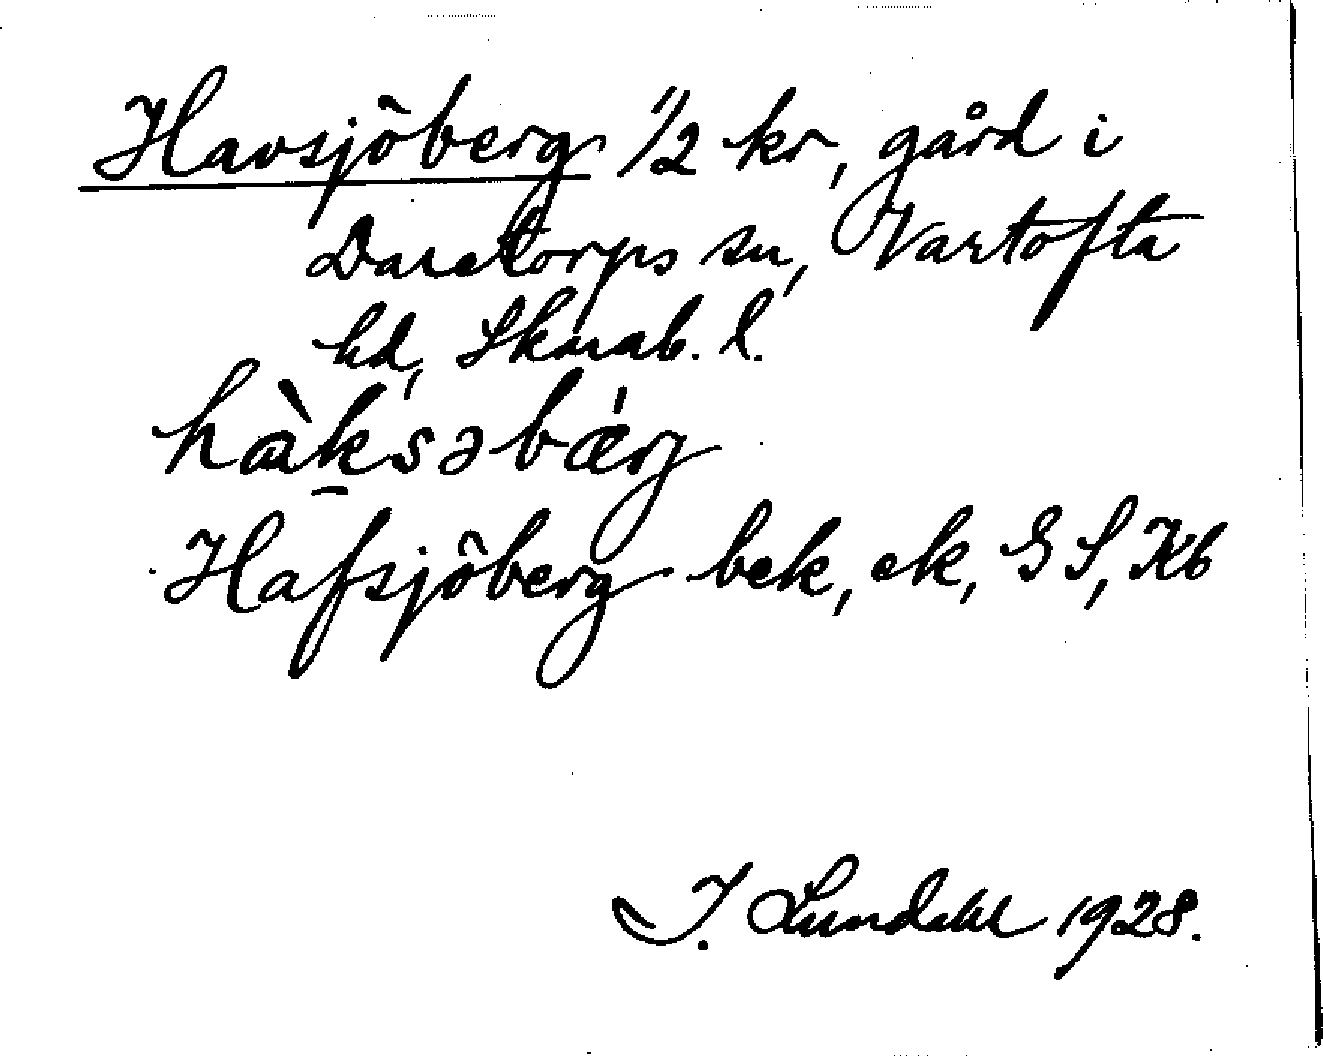 Havsjöberg 1/2 kr, gård i
Daretorps sn, Vartofta
hd, Skarab. l.
hàk̠səbǽrg
Hafsjöberg bek, ek, GS, Kb
I. Lundahl 1928.